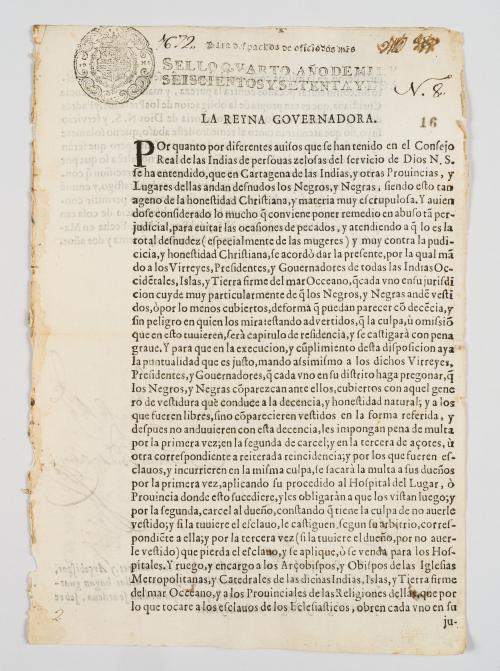 Nº 72.
Para despachos de oficio dos mrs
SELLO QVARTO, AÑO DE MIL Y
SEISCIENTOS Y SETENTA Y
N. 8.
16
LA REYNA GOVERNADORA.
POr quanto por diferentes auisos que se han tenido en el Consejo
Real de las Indias de personas zelosas del servicio de Dios N. S.
se ha entendido, que en Cartagena de las Indias, y otras Prouincias, y
Lugares dellas andan desnudos los Negros, y Negras, siendo esto tan
ageno de la honestidad Christiana, y materia muy escrupulosa. Y auien
dose considerado lo mucho q̃ conviene poner remedio en abuso tã per-
judicial, para euitar las ocasiones de pecados, y atendiendo a q̃ lo es la
total desnudez (especialmente de las mugeres) y muy contra la pudi-
cicia, y honestidad Christiana, se acordò dar la presente, por la qual mã
do a los Virreyes, Presidentes, y Gouernadores de todas las Indias Oc-
cidẽtales, Islas, y Tierra firme del mar Occeano, q̃ cada vno en su jurisdi
cion cuyde muy particularmente de q̃ los Negros, y Negras andẽ vesti
dos, ò por lo menos cubiertos, de forma q̃ puedan parecer cõ decẽcia, y
sin peligro en quien los mira: estando advertidos, q̃ la culpa, ù omisiõ
que en esto tuuieren, serà capitulo de residencia, y se castigarà con pena
graue. Y para que en la execucion, y cũplimiento desta disposicion aya
la puntualidad que es justo, mando assimismo a los dichos Virreyes,
Presidentes, y Gouernadores, q̃ cada vno en su distrito haga pregonar, q̃
los Negros, y Negras cõparezcan ante ellos, cubiertos con aquel gene
ro de vestidura que conduce a la decencia, y honestidad natural; y a los
que fueren libres, sino cõparecieren vestidos en la forma referida, y
despues no anduuieren con esta decencia, les impongan pena de multa
por la primera vez; en la segunda de carcel; y en la tercera de açotes, ù
otra correspondiente a reiterada reincidencia; y por los que fueren es-
clauos, y incurrieren en la misma culpa, se sacarà la multa a sus dueños
por la primera vez, aplicando su procedido al Hospital del Lugar, ò
Prouincia donde esto sucediere, y les obligaràn a que los vistan luego; y
por la segunda, carcel al dueño, constando q̃ tiene la culpa de no auerle
vestido; y si la tuuiere el esclauo, le castiguen, segun su arbitrio, corres-
pondiẽre a ella; y por la tercera vez (si la tuuiere el dueño, por no auer-
le vestido) que pierda el esclauo, y se aplique, ò se venda para los Hos-
pitales. Y ruego, y encargo a los Arçobispos, y Obispos de las Iglesias
Metropolitanas, y Catedrales de las dichas Indias, Islas, y Tierra firme
del mar Oceano, y a los Prouinciales de las Religiones dellas, que por
lo que tocare a los esclauos de los Eclesiasticos, obren cada vno en su
ju-
2